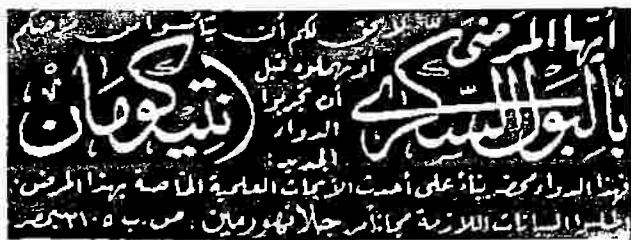 أيها المرضى
بالبول السكري
لا يحق لكم أن تيأسوا من مرضكم
أو تهملوه قبل
أن تجربوا
الدواء
الجديد:
انتيكومان
فهذا الدواء محضر بناء على أحدث الأبحاث العلمية الخاصة بهذا المرض.
اطلبوا البيانات اللازمة مجانا من جلانهورمين . ص. ب ٢١٠٥ بمصر